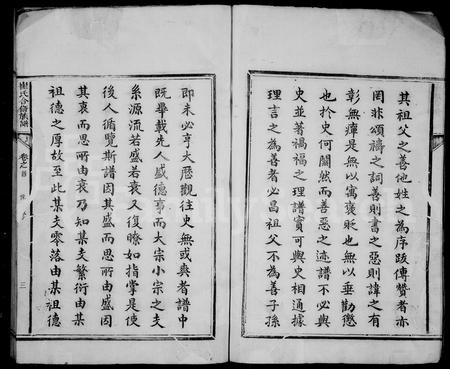 其祖父之善他姓之為序跋傳贊者亦
罔非頌禱之詞善則書之惡則諱之有
彰無癉是無以寓褒貶也無以垂勸懲
也於史何關然而善惡之迹譜不必與
史並著禍福之理譜實可與史相通據
理言之為善者必昌祖父不為善子孫
即未必亨大歷觀往史無或爽者譜中
既畢載先人盛德亨而大宗小宗之支
系源流若盛若衰又復瞭如指掌是使
後人循覽斯譜因其盛而思所由盛因
其衰而思所由衰乃知某支繁衍由某
祖德之厚故至此某支零落由某祖德
崔氏合脩族譜
卷之首
三